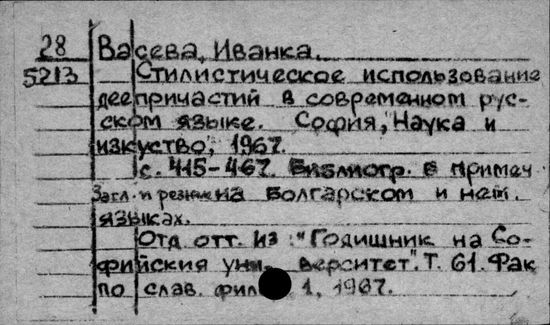 28 Васева, Иванка.
5213 Стилистическое использование
деепричастий в современном рус-
ском языке. София, "Наука и
изкуство", 1967.
с. 415-467. Библиогр. в примеч
Загл. и резюме на болгарском и нем.
языках.
Отд отт. из: "Годишник на Со-
фийския уни- верситет". Т. 61. Фак
по слав. фил 1, 1967.